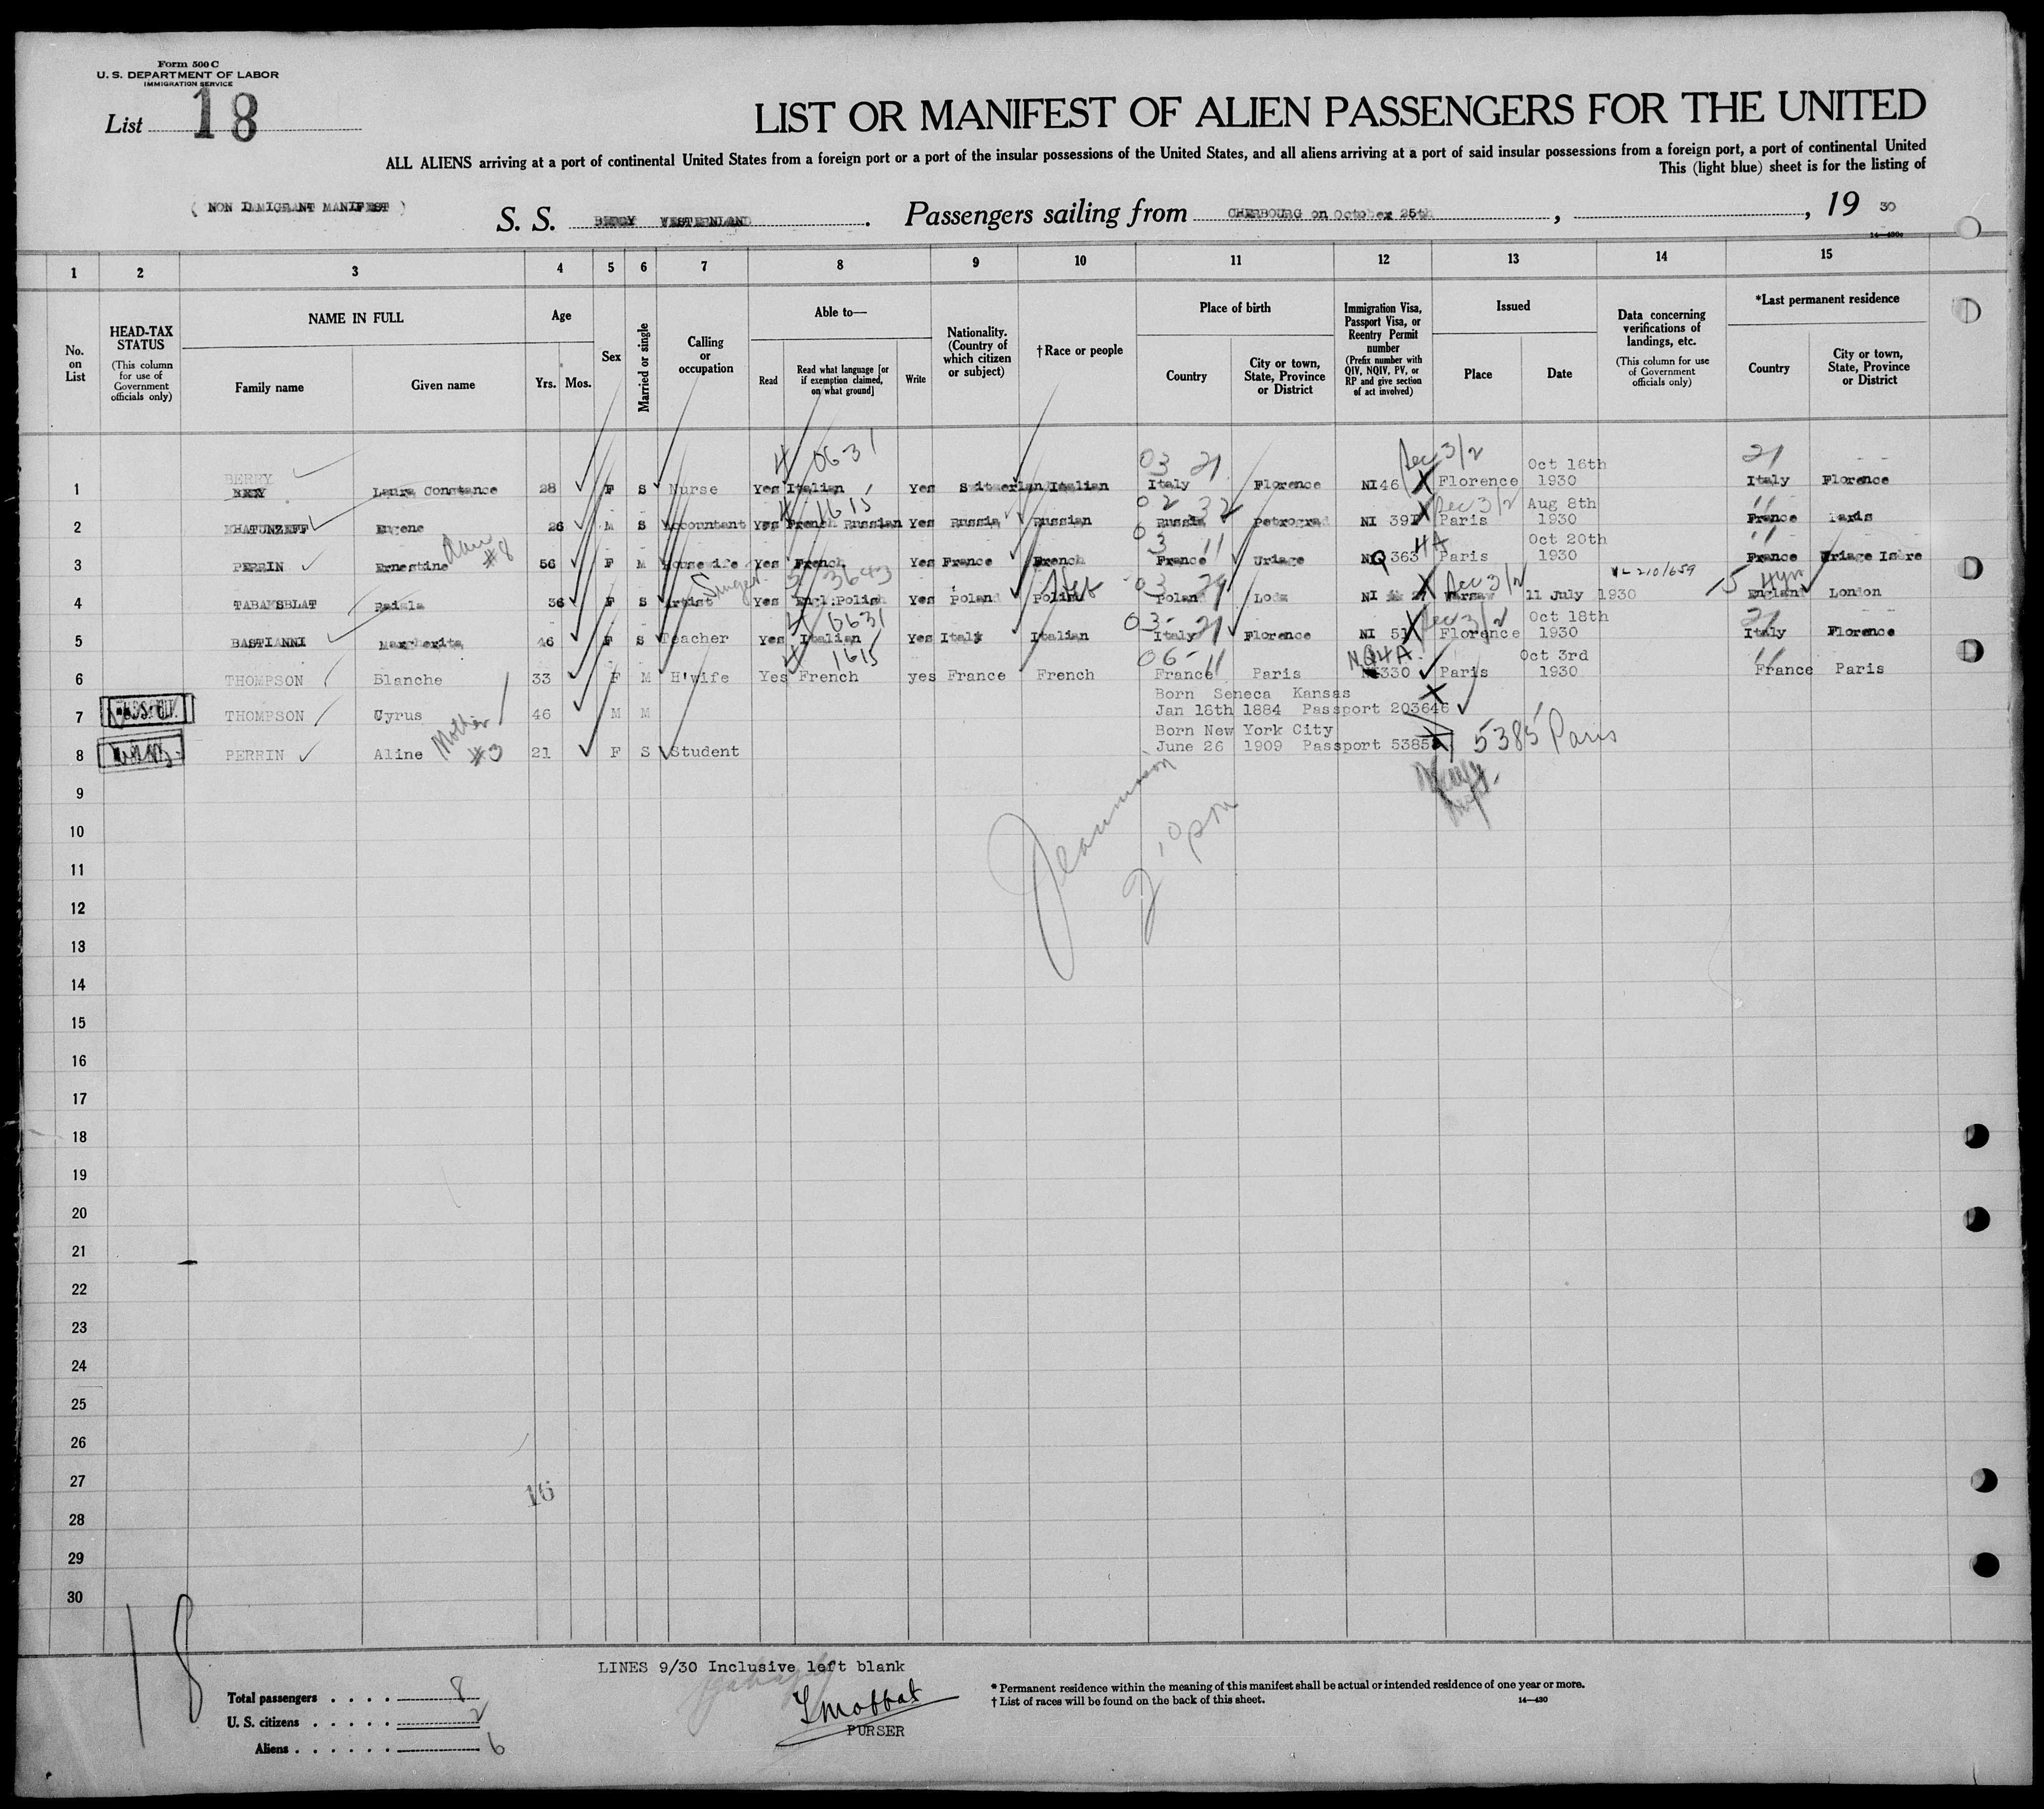 Form 500 C
U. S. DEPARTMENT OF LABOR
IMMIGRATION SERVICE
List 18
LIST OR MANIFEST OF ALIEN PASSENGERS FOR THE UNITED
ALL ALIENS arriving at a port of continental United States from a foreign port or a port of the insular possessions of the United States, and all aliens arriving at a port of said insular possessions from a foreign port, a port of continental United
This (light blue) sheet is for the listing of
( NON IMMIGRANT MANIFEST )
S. S. WESTERNLAND . Passengers sailing from CHERBOURG on October 25th , , 19 30
14—430c
1 2 3 4 5 6 7 8 9 10 11 12 13 14 15
No. on List
HEAD-TAX STATUS
(This column for use of Government officials only)
NAME IN FULL
Family name
Given name
Age
Yrs. Mos.
Sex
Married or single
Calling or occupation
Able to—
Read
Read what language [or if exemption claimed, on what ground]
Write
Nationality. (Country of which citizen or subject)
† Race or people
Place of birth
Country
City or town, State, Province or District
Immigration Visa, Passport Visa, or Reentry Permit number
(Prefix number with QIV, NQIV, PV, or RP and give section of act involved)
Issued
Place
Date
Data concerning verifications of landings, etc.
(This column for use of Government officials only)
*Last permanent residence
Country
City or town, State, Province or District
4 0631 03 21 Sec 3/2 Oct 16th 21
BERRY
1 Laura Constance 28 F S Nurse Yes Italian Yes Switzerlan Italian Italy Florence NI 46 Florence 1930 Italy Florence
4 1615 02 32 Sec 3/2 Aug 8th 11
2 KHATUNZEFF Eugene 26 M S Accountant Yes French Russian Yes Russia Russian Russia Petrograd NI 391 Paris 1930 France Paris
03 11 4A Oct 20th 11
3 PERRIN Ernestine #8 56 F M Housewife Yes French Yes France French France Uriage NQ 363 Paris 1930 France Uriage Isère
Singer 5 3643 Heb 03 29 Sec 3/2 VL 210/659 15
4 TABAKSBLAT 36 F S Artist Yes Engl.Polish Yes Poland Polish Poland Lodz NI Warsaw 11 July 1930 England London
4 0631 03- 21 Sec 3/2 Oct 18th 21
5 BASTIANNI Margherita 46 F S Teacher Yes Italian Yes Italy Italian Italy Florence NI 51 Florence 1930 Italy Florence
4 1615 06- 11 NQ4A Oct 3rd 11
6 THOMPSON Blanche 33 F M H'wife Yes French yes France French France Paris 330 Paris 1930 France Paris
Born Seneca Kansas
7 THOMPSON Cyrus 46 M M Jan 18th 1884 Passport 203646
Mother #3 Born New York City
8 PERRIN Aline 21 F S Student June 26 1909 Passport 5385 5385 Paris
9
10
2:10 pm
11
12
13
14
15
16
17
18
19
20
21
22
23
24
25
26
27
16
28
29
30
18
LINES 9/30 Inclusive left blank
Total passengers . . . . 8
U. S. citizens . . . . . 2
Aliens . . . . . . 6
PURSER
* Permanent residence within the meaning of this manifest shall be actual or intended residence of one year or more.
† List of races will be found on the back of this sheet.
14—430